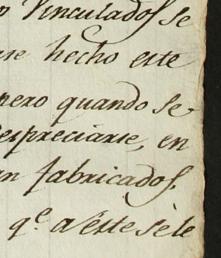 n Vinculados se
se hecho este
pero quando se
despreciarse, en
n fabricados.
q.e a éste sele